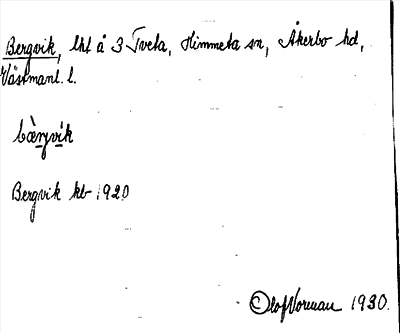 Bergvik, lht å 3 Tveta, Himmeta sn, Åkerbo hd,
Västmanl. l.
bæ̀rgvík
Bergvik kb 1920
Olof Norman 1930.